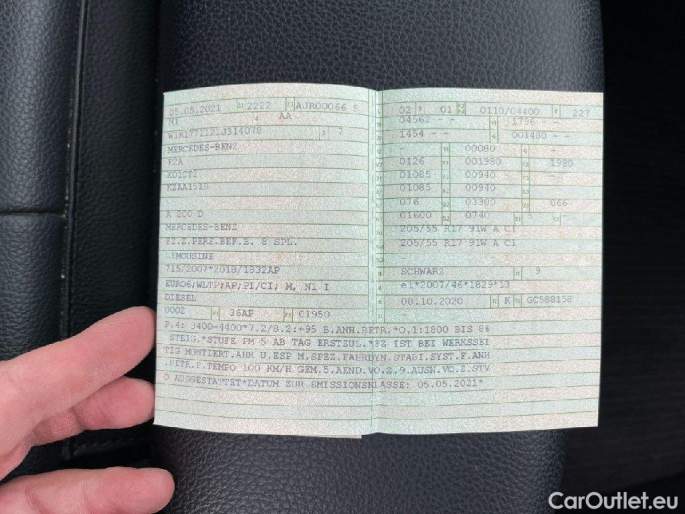 05.05.2021 2222 AJR00066 5
M1 AA
MERCEDES-BENZ
F2A
A 200 D
MERCEDES-BENZ
FZ.Z.PERS.BEF.B. 8 SPL.
LIMOUSINE
715/2007*2018/1832AP
EURO6;WLTP;AP;PI/CI; M, N1 I
DIESEL
0002 36AP 01950
02 01 0110/04400 227
04562 - - 1796 - -
1454 - - 001480 - -
- 00080 -
0126 001980 1980
01085 00940 -
01085 00940 -
076 03300 066
01600 0740
205/55 R17 91W A C1
205/55 R17 91W A C1
SCHWARZ 9
e1*2007/46*1829*13
08.10.2020 K
P.4: 3400-4400*7.2/8.2:+95 B.ANH.BETR.*O.1:1800 BIS 8%
STEIG.*STUFE PM 5 AB TAG ERSTZUL.*FZ IST BEI WERKSSEI
TIG MONTIERT.AHK U.ESP M.SPEZ.FAHRDYN.STABI.SYST.F.ANH
.BETR.F.TEMPO 100 KM/H GEM.5.AEND.VO.Z.9.AUSN.VO.Z.STV
O AUSGESTATTET*DATUM ZUR EMISSIONSKLASSE: 05.05.2021*
CarOutlet.eu